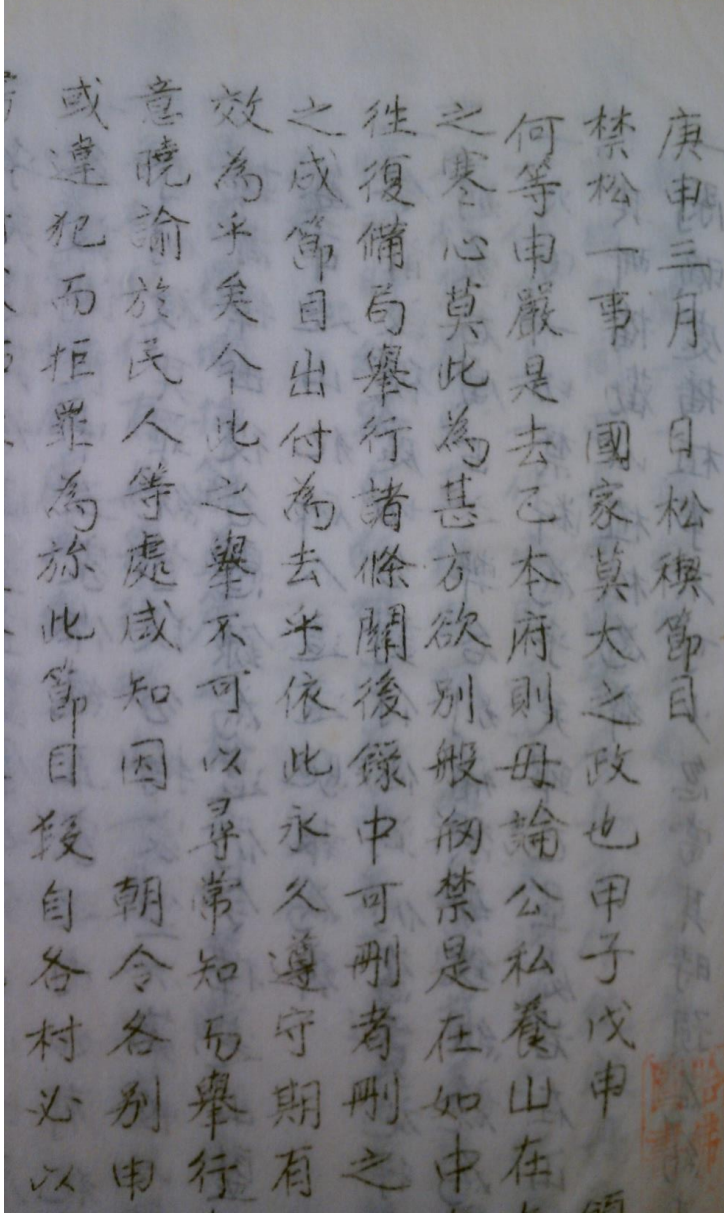 庚申三月 日松稧節目
禁松一事 國家莫大之政也甲子戊申
何等申嚴是去乙本府則毋論公私養山在
之寒心莫此為甚方欲別般糾禁是在如中
徃復備局舉行諸條關後錄中可刪者刪之
之成節目出付為去乎依此永久遵守期有
效為乎矣今此之舉不可以尋常知而舉行
意曉諭於民人等處咸知因 朝令各別申
或違犯而拒罪為旀此節目段自各村必以